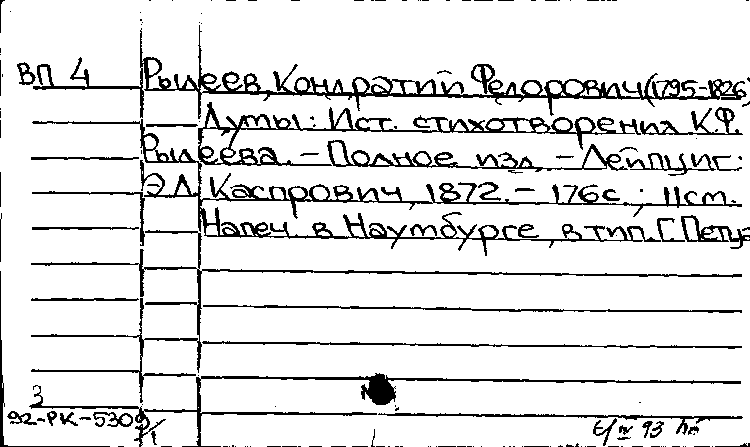 ВП 4 Рылеев, Кондратий Федорович (1795-1826)
Думы: Ист. стихотворения К.Ф.
Рылеева. – Полное изд. – Лейпциг:
Э.Л. Каспрович, 1872. – 176с.; 11см.
Напеч. в Наумбурге, в тип. Г. Петца
3
92-РК-5309